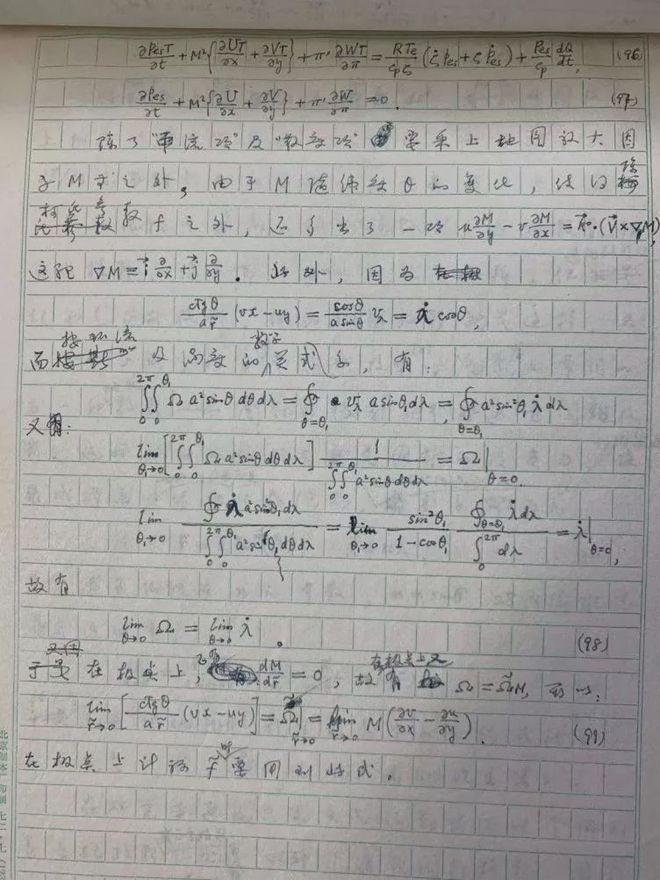 ∂P_es T/∂t + M²{∂UT/∂x + ∂VT/∂y} + π·∂WT/∂π = RT_e/(c_p ζ) (ζ̇ P_es + ζ Ṗ_es) + P_es/c_p dQ/dt, (96)
∂P_es/∂t + M²{∂U/∂x + ∂V/∂y} + π·∂W/∂π = 0. (97)
除了“平流项”及“散度项”要乘上地图放大因
子M²之外, 由于M随纬度θ的变化, 使得除
柯氏参数f之外, 还多出了一项 u∂M/∂y - v∂M/∂x = k⃗·(V⃗×∇M),
这里 ∇M = i⃗ ∂/∂x + j⃗ ∂/∂y. 此外, 因为
ctgθ/(a r̃) (vx - uy) = cosθ/(a sinθ) v_λ = λ̇ cosθ,
而按环流及涡度的数学关系式, 有:
∫₀^{2π}∫₀^{θ₁} Ω a² sinθ dθ dλ = ∮_{θ=θ₁} v_λ a sinθ₁ dλ = ∮_{θ=θ₁} a² sin²θ₁ λ̇ dλ
又有:
lim_{θ₁→0} [∫₀^{2π}∫₀^{θ₁} Ω a² sinθ dθ dλ] 1/(∫₀^{2π}∫₀^{θ₁} a² sinθ dθ dλ) = Ω|_{θ=0.}
lim_{θ₁→0} ∮ λ̇ a² sin²θ₁ dλ / (∫₀^{2π}∫₀^{θ₁} a² sinθ dθ dλ) = lim_{θ₁→0} sin²θ₁/(1 - cosθ₁) ∮_{θ=θ₁} λ̇ dλ / ∫₀^{2π} dλ = λ̇|_{θ=0,}
故有
lim_{θ→0} Ω = lim_{θ→0} λ̇ 。 (98)
又因在极点上, dM/dr̃ = 0, 故在极点上又有 Ω = Ω̃M, 所以:
lim_{r̃→0} [ctgθ/(a r̃) (vx - uy)] = Ω̃|_{r̃→0} = lim_{r̃→0} M(∂v/∂x - ∂u/∂y). (99)
在极点上计算 f̃ 时要用到此式.